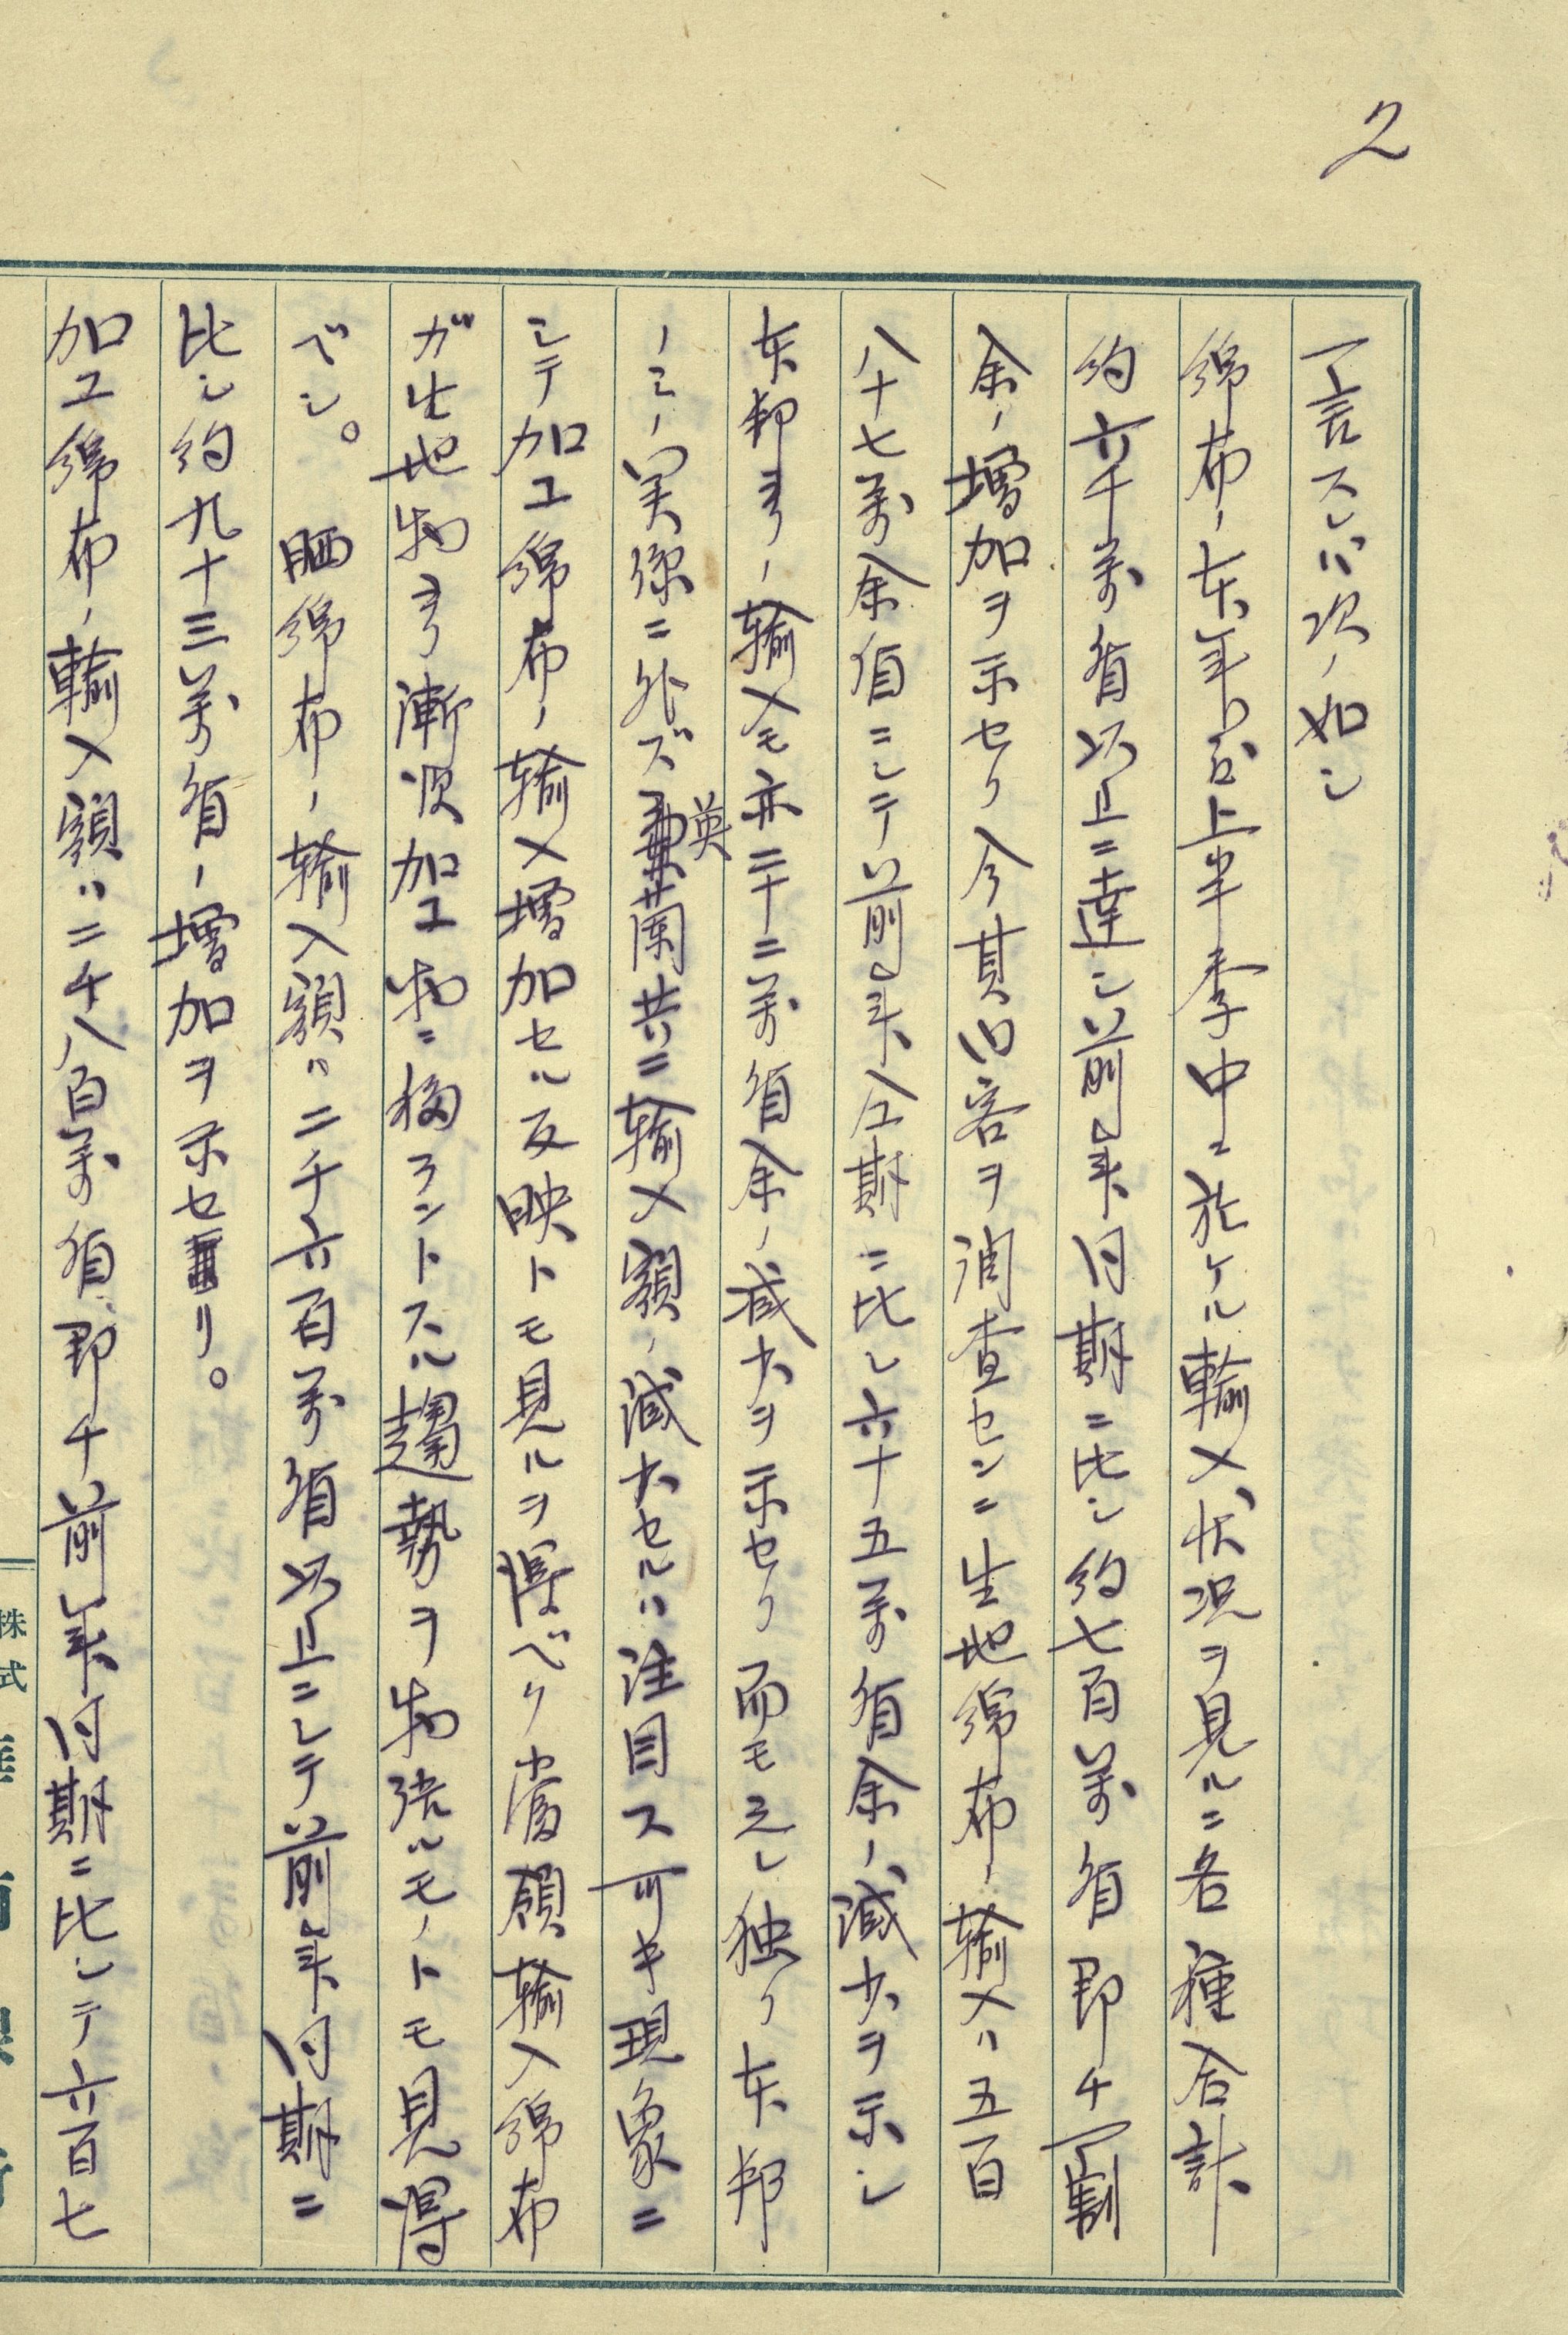 2
一言スレバ次ノ如シ
綿布ノ本年度上半季中ニ於ケル輸入状況ヲ見ルニ各種合計
約六千萬盾以上ニ達シ前年同期ニ比シ約七百萬盾即チ一割
余ノ増加ヲ示セリ今其内容ヲ調査センニ生地綿布ノ輸入ハ五百
八十七萬余盾ニシテ前年仝期ニ比シ六十五萬盾余ノ減少ヲ示シ
本邦ヨリノ輸入モ亦二十二萬盾余ノ減少ヲ示セリ而モ之レ独リ本邦
ノミノ関係ニ外ズ英蘭共ニ輸入額ノ減少セルハ注目ス可キ現象ニ
シテ加工綿布ノ輸入増加セル反映トモ見ルヲ得ベク当領輸入綿布
ガ生地物ヨリ漸次加工物ニ移ラントスル趨勢ヲ物語ルモノトモ見得
ベシ。晒綿布ノ輸入額ハ二千六百萬盾以上ニシテ前年同期ニ
比シ約九十三萬盾ノ増加ヲ示セリ。
加工綿布ノ輸入額ハ二千八百萬盾即チ前年同期ニ比シテ六百七
株式